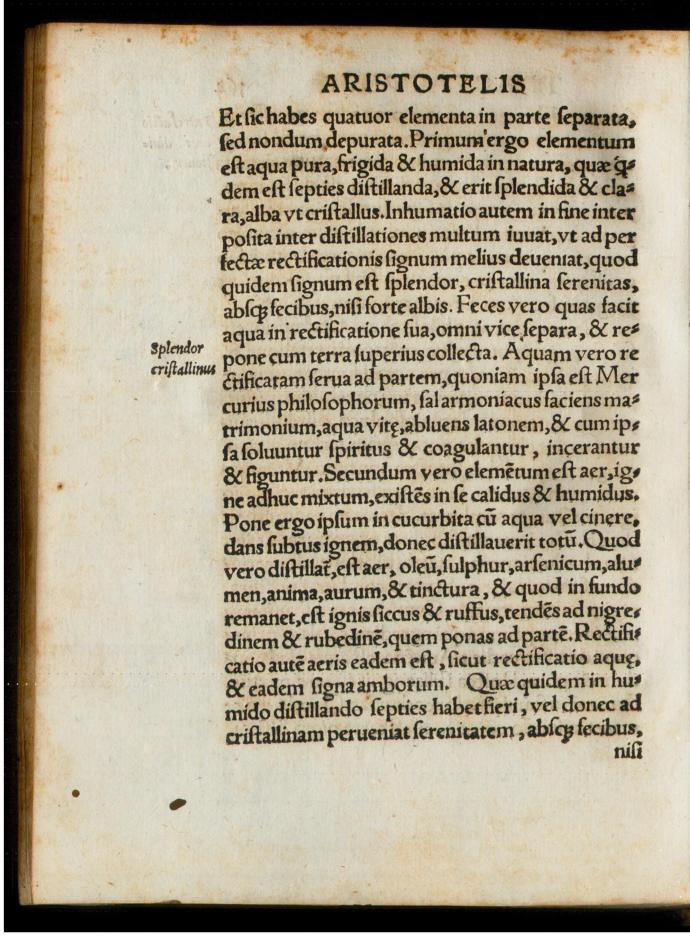 ARISTOTELIS
Et sic habes quatuor elementa in parte separata,
sed nondum depurata. Primum ergo elementum
est aqua pura, frigida & humida in natura, quæ q̃⸗
dem est septies distillanda, & erit splendida & cla⸗
ra, alba vt cristallus. Inhumatio autem in fine inter
posita inter distillationes multum iuuat, vt ad per
fectæ rectificationis signum melius deueniat, quod
quidem signum est splendor, cristallina serenitas,
absq; fecibus, nisi forte albis. Feces vero quas facit
aqua in rectificatione sua, omni vice separa, & re⸗
Splendor
cristallinus
pone cum terra superius collecta. Aquam vero re
ctificatam serua ad partem, quoniam ipsa est Mer
curius philosophorum, sal armoniacus faciens ma⸗
trimonium, aqua vitę, abluens latonem, & cum ip⸗
sa soluuntur spiritus & coagulantur, incerantur
& figuntur. Secundum vero elemẽtum est aer, ig⸗
ne adhuc mixtum, existẽs in se calidus & humidus.
Pone ergo ipsum in cucurbita cũ aqua vel cinere,
dans subtus ignem, donec distillauerit totũ. Quod
vero distillat̃, est aer, oleũ, sulphur, arsenicum, alu⸗
men, anima, aurum, & tinctura, & quod in fundo
remanet, est ignis siccus & ruffus, tendẽs ad nigre⸗
dinem & rubedinẽ, quem ponas ad partẽ. Rectifi⸗
catio autẽ aeris eadem est, sicut rectificatio aquę,
& eadem signa amborum. Quæ quidem in hu⸗
mido distillando septies habet fieri, vel donec ad
cristallinam perueniat serenitatem, absq; fecibus,
nisi